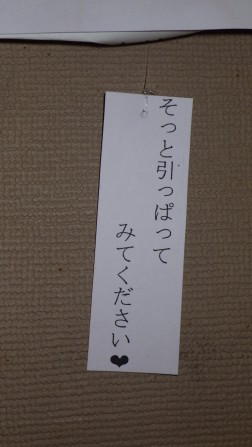 そっと引っぱって
みてください❤